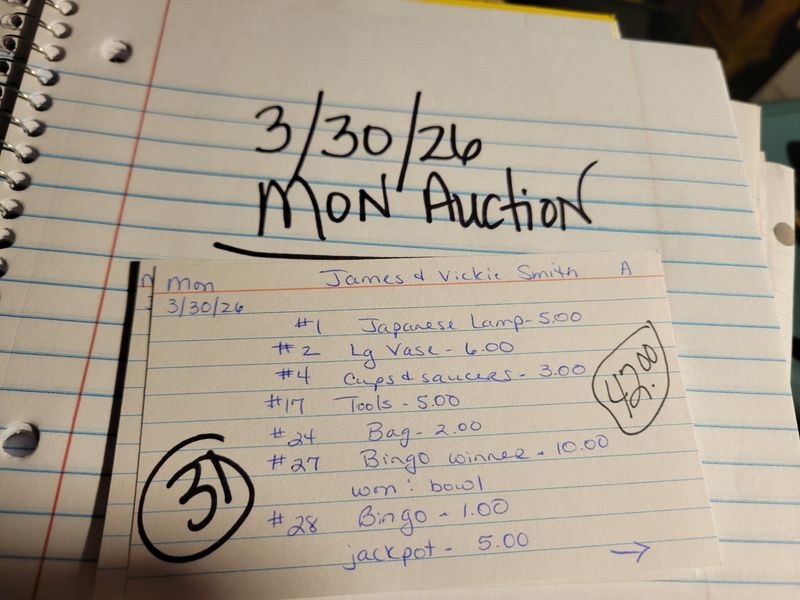 3/30/26
MON AUCTION
Mon James & Vickie Smith A
3/30/26
#1 Japanese Lamp - 5.00
#2 Lg Vase - 6.00
#4 Cups & saucers - 3.00
42.00
#17 Tools - 5.00
#24 Bag - 2.00
#27 Bingo winner - 10.00
won : bowl
31
#28 Bingo - 1.00
jackpot - 5.00 →